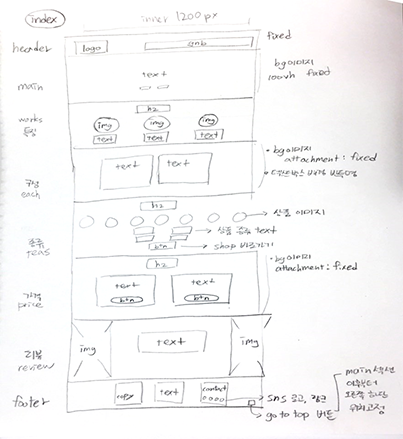 index
inner 1200px
header
logo
gnb
fixed
bg이미지
100vh fixed
main
text
works
h2
img
img
img
text
text
text
each
text
text
bg이미지
attachment: fixed
teas
h2
상품 이미지
text
btn
shop 바로가기
price
h2
text
text
btn
btn
bg이미지
attachment: fixed
리뷰
review
img
text
img
footer
copy
text
contact
sns 로고, 링크
go to top 버튼
main 섹션
이후부터
오른쪽 하단
위치고정